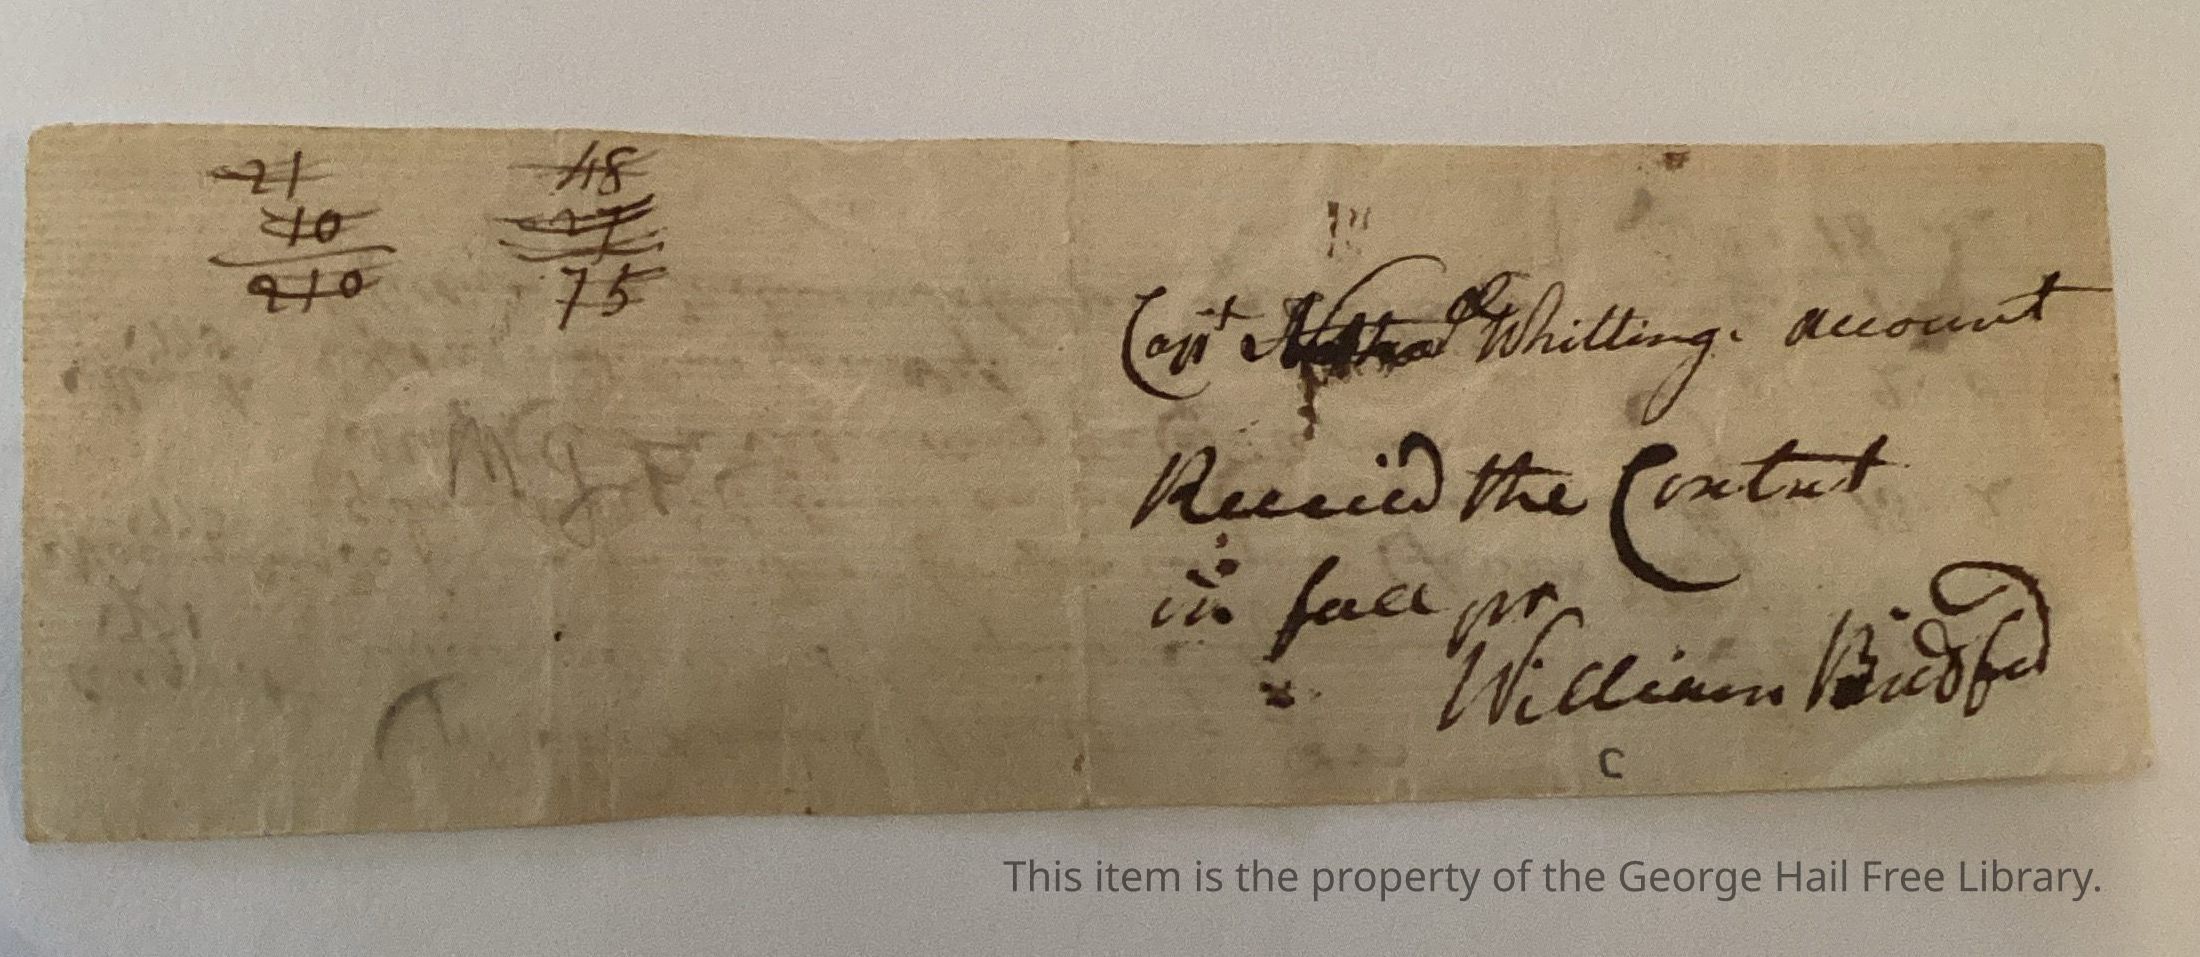 21
10
210
48
27
75
Capt Whitting. account
Receivd the Contut
in full pr
William Bradford
C
This item is the property of the George Hail Free Library.